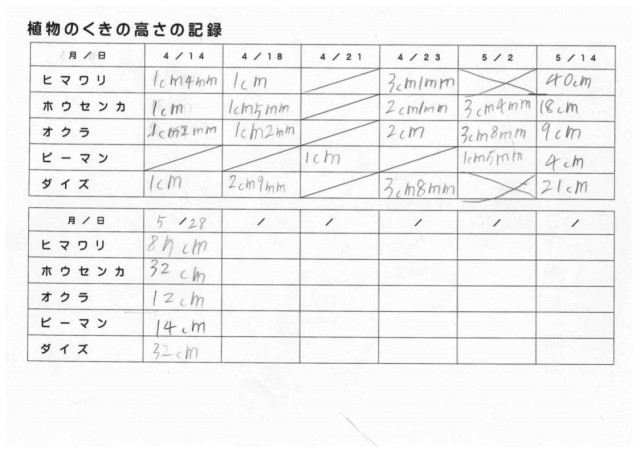 植物のくきの高さの記録
月/日 4/14 4/18 4/21 4/23 5/2 5/14
ヒマワリ 1cm4mm 1cm 3cm1mm 40cm
ホウセンカ 1cm 1cm5mm 2cm1mm 3cm4mm 18cm
オクラ 1cm2mm 1cm2mm 2cm 3cm8mm 9cm
ピーマン 1cm 1cm5mm 4cm
ダイズ 1cm 2cm9mm 3cm8mm 21cm
月/日 5/28 / / / / /
ヒマワリ cm
ホウセンカ 32cm
オクラ 12cm
ピーマン 14cm
ダイズ 32cm